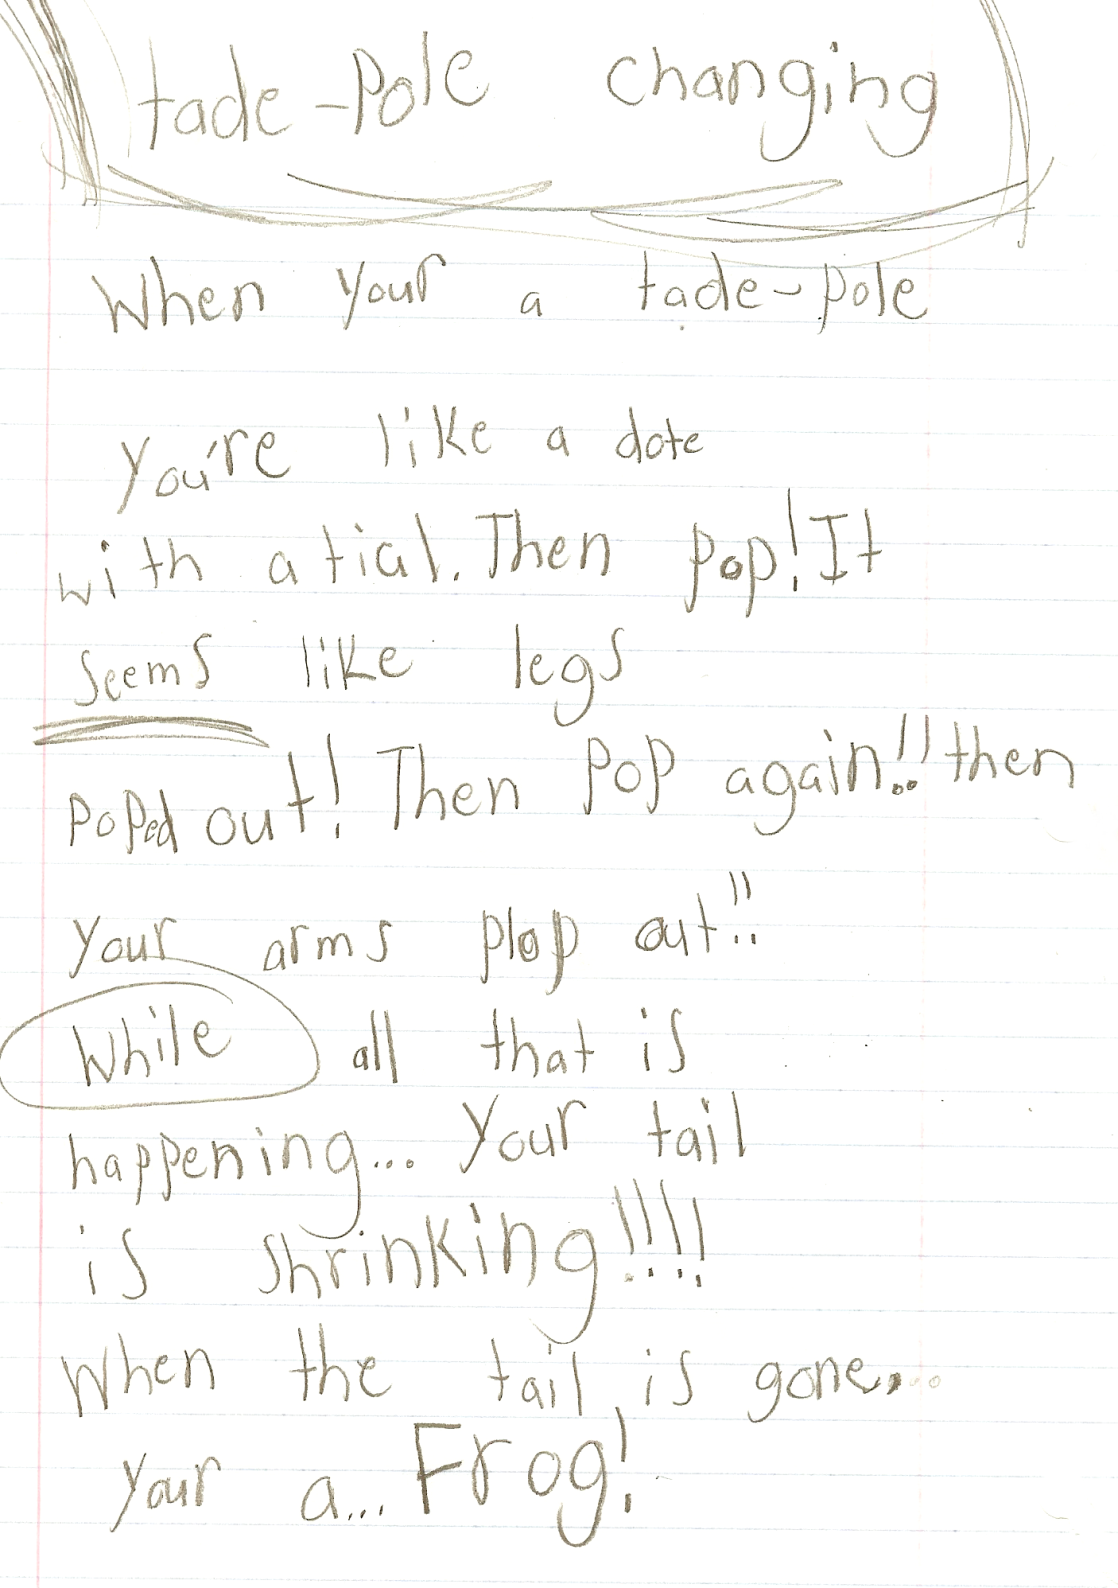 tade-Pole changing
When your a tade-pole
you're like a dote
with a tial. Then pop! It
seems like legs
poped out! Then pop again!! then
your arms plop out!!
While all that is
happening... your tail
is shrinking!!!!
When the tail is gone...
your a... Frog!